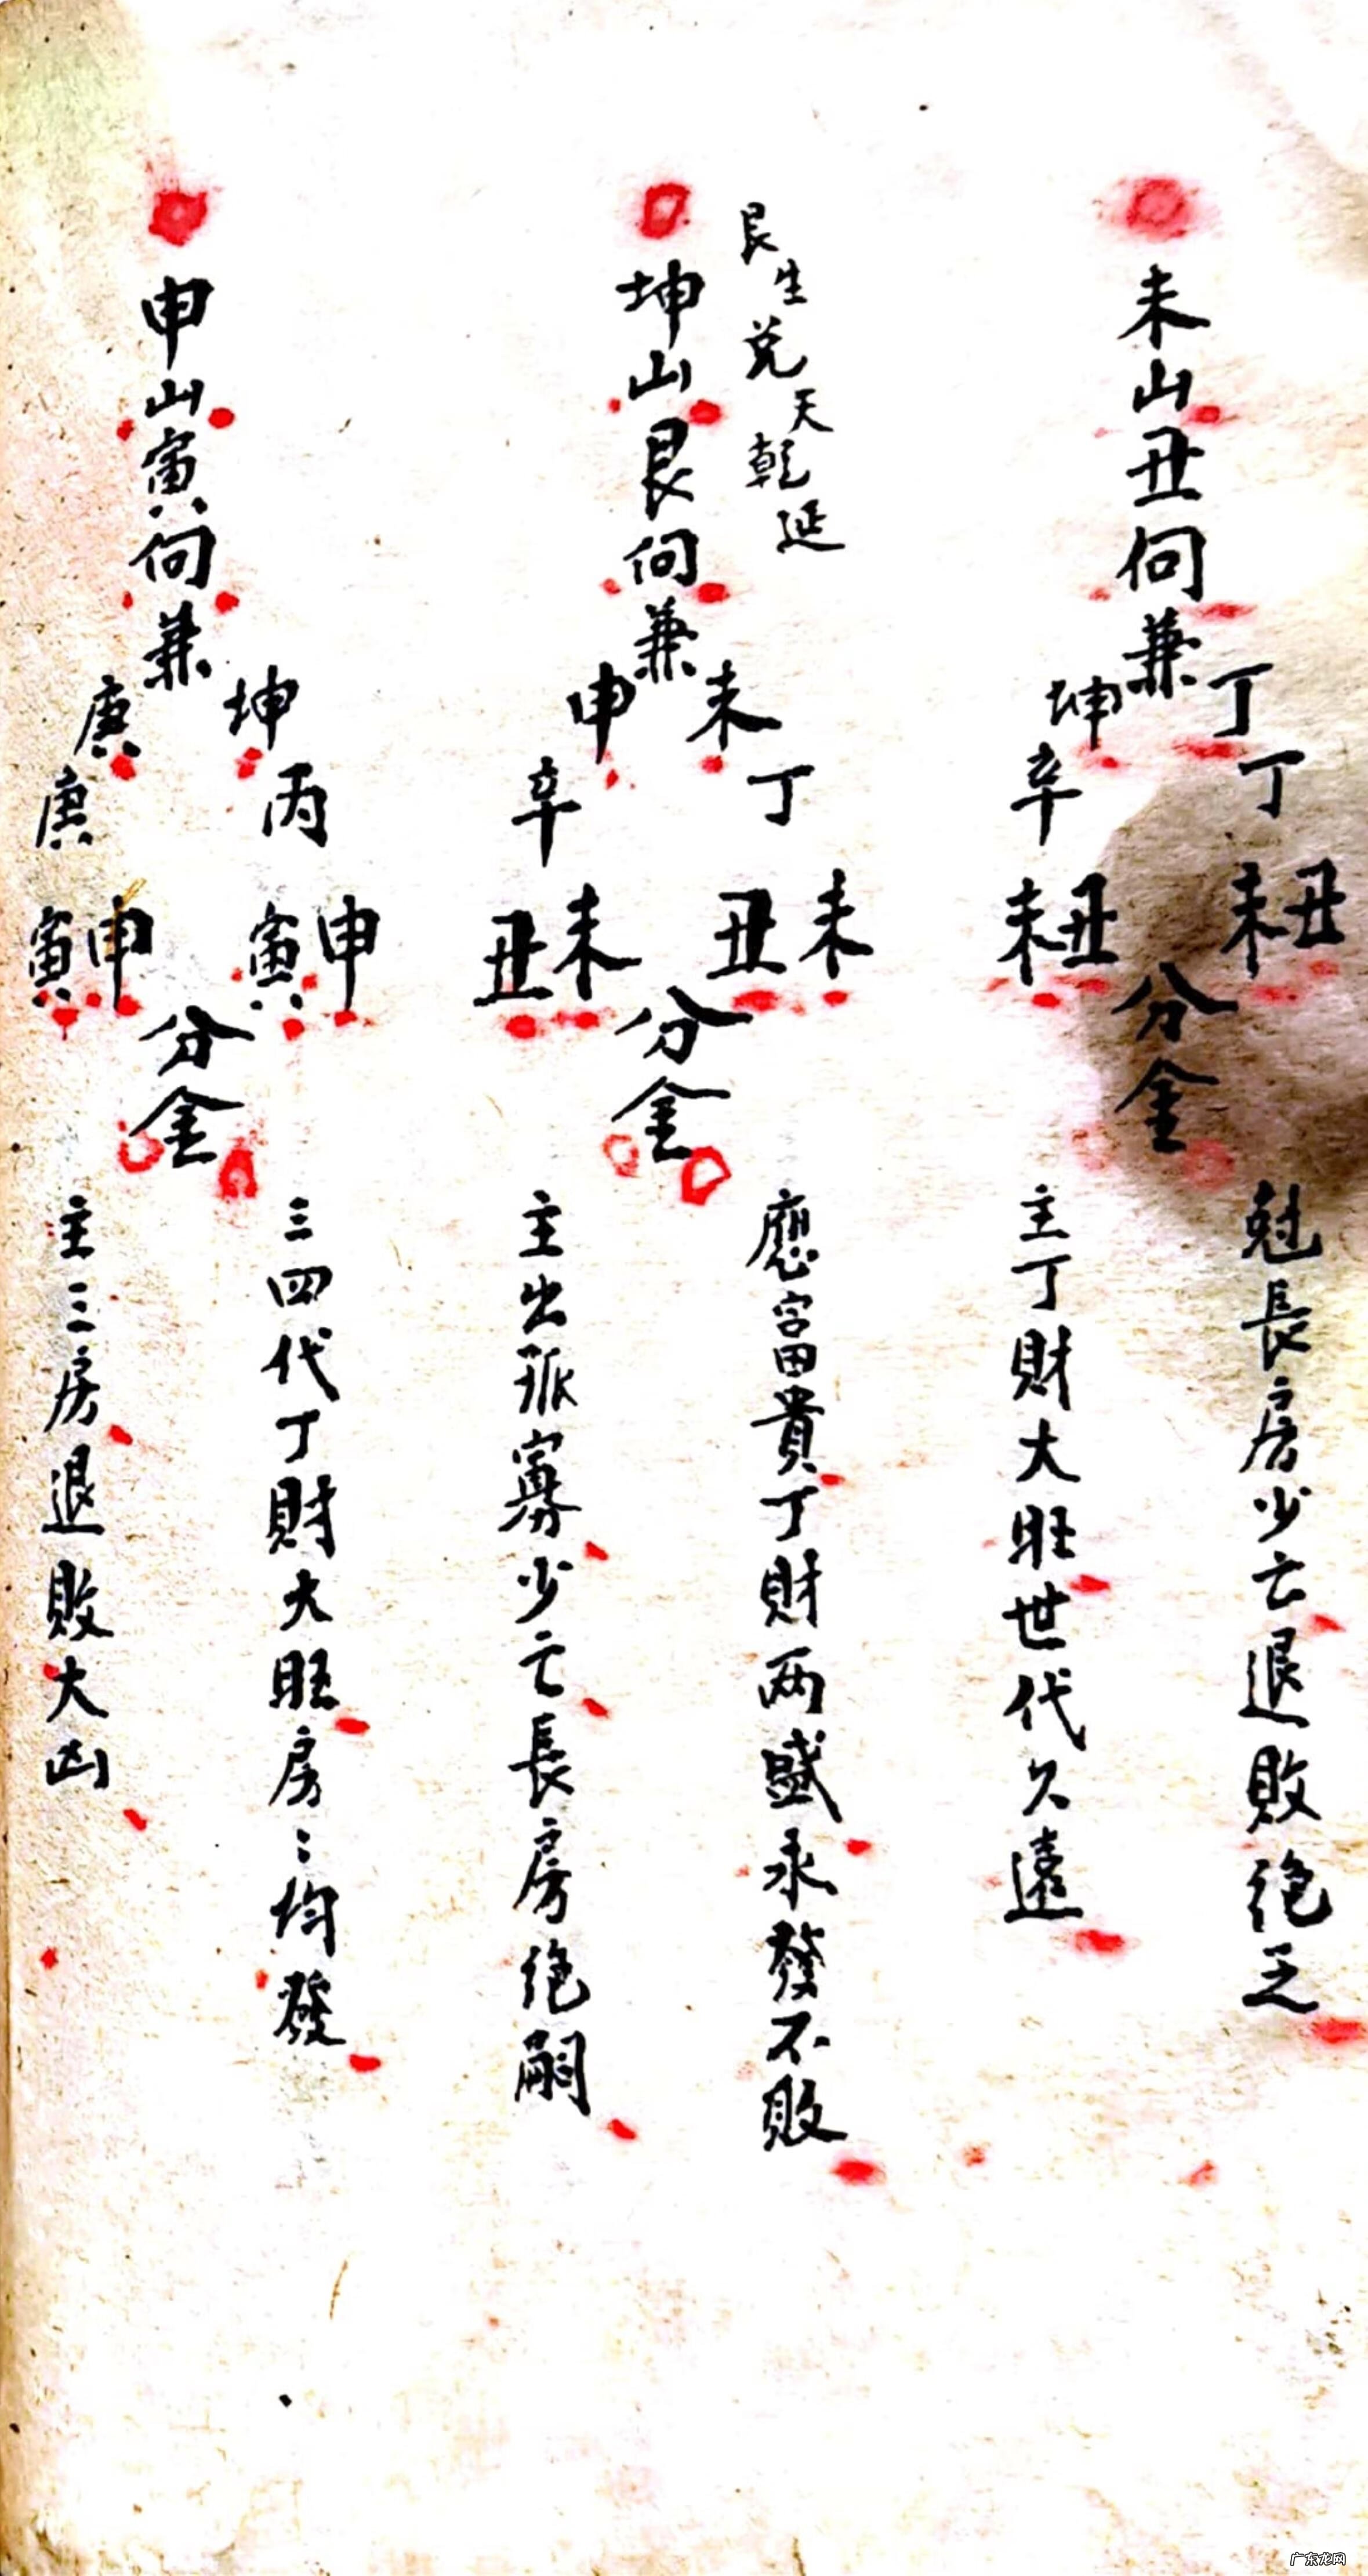 未山丑向兼
丁丁丑未
坤辛丑未
分金
尅長房少亡退敗絕乏
主丁財大旺世代久遠
艮生兌天乾延
坤山艮向兼
未丁未丑
申辛未丑
分金
應富貴丁財两盛永發不敗
主出孤寡少亡長房绝嗣
申山寅向兼
坤丙申寅
庚庚申寅
分金
三四代丁財大旺房〻均發
主三房退敗大凶
广东龙网